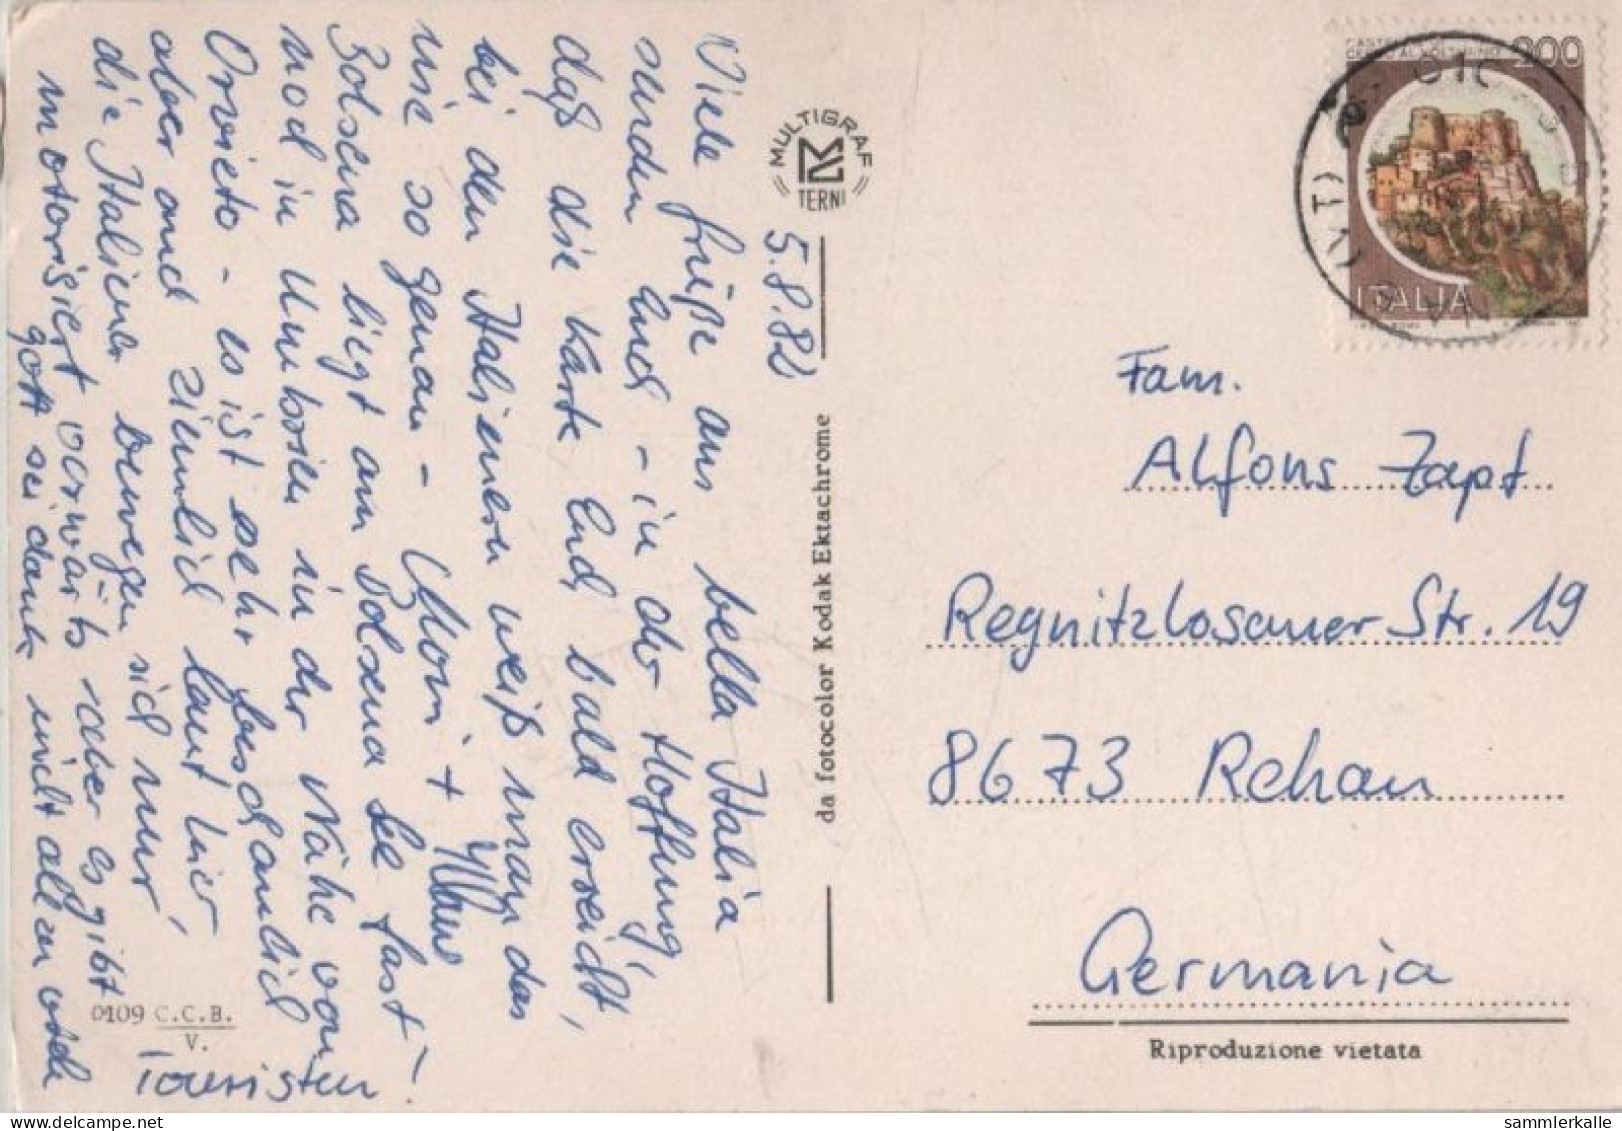 5.8.82
Viele Grüße aus bella Italia
senden Euch - in der Hoffnung,
daß die Karte Euch bald erreicht,
bei den Italienern weiß man das
nie so genau - Moni + Klaus
Bolsena liegt am Bolsena See fast
noch in Umbrien in der Nähe von
Orvieto - es ist sehr beschaulich
aber auch ziemlich laut hier,
die Italiener bewegen sich nur
motorisiert vorwärts - aber es gibt
gott sei dank nicht allzu viele
Touristen.
MULTIGRAF
TERNI
da fotocolor Kodak Ektachrome
0109 C.C.B.
V.
200
ITALIA
(VT)
Fam.
Alfons Zapf
Regnitzlosauer Str. 19
8673 Rehau
Germania
Riproduzione vietata
www.sammlerkalle.com